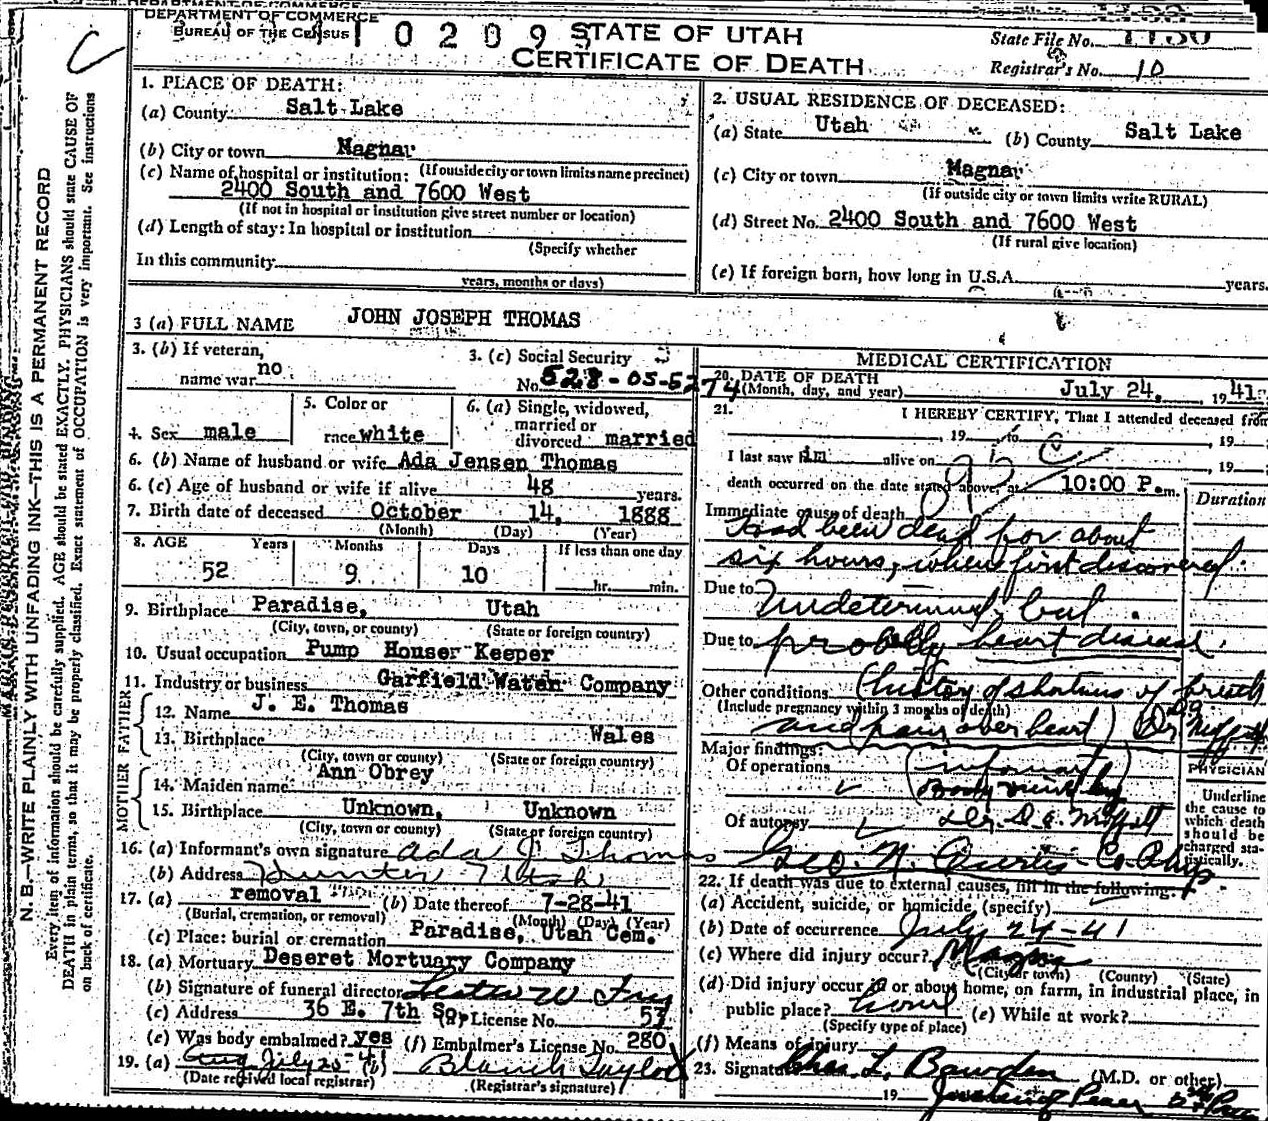 DEPARTMENT OF COMMERCE
BUREAU OF THE CENSUS
1 1 0 2 0 9
STATE OF UTAH
CERTIFICATE OF DEATH
State File No. 1150
Registrar's No. 10
N. B.—WRITE PLAINLY WITH UNFADING INK—THIS IS A PERMANENT RECORD
Every item of information should be carefully supplied. AGE should be stated EXACTLY. PHYSICIANS should state CAUSE OF
DEATH in plain terms, so that it may be properly classified. Exact statement of OCCUPATION is very important. See instructions
on back of certificate.
1. PLACE OF DEATH:
(a) County Salt Lake
(b) City or town Magna
(If outside city or town limits name precinct)
(c) Name of hospital or institution:
2400 South and 7600 West
(If not in hospital or institution give street number or location)
(d) Length of stay: In hospital or institution
(Specify whether
In this community
years, months or days)
2. USUAL RESIDENCE OF DECEASED:
(a) State Utah (b) County Salt Lake
(c) City or town Magna
(If outside city or town limits write RURAL)
(d) Street No. 2400 South and 7600 West
(If rural give location)
(e) If foreign born, how long in U.S.A. years.
3 (a) FULL NAME JOHN JOSEPH THOMAS
3. (b) If veteran, name war no
3. (c) Social Security No. 528-05-5274
4. Sex male
5. Color or race white
6. (a) Single, widowed, married or divorced married
6. (b) Name of husband or wife Ada Jensen Thomas
6. (c) Age of husband or wife if alive 48 years.
7. Birth date of deceased October 14, 1888
(Month) (Day) (Year)
8. AGE Years Months Days If less than one day
52 9 10 hr. min.
9. Birthplace Paradise, Utah
(City, town, or county) (State or foreign country)
10. Usual occupation Pump Houser Keeper
11. Industry or business Garfield Water Company
FATHER
12. Name J. E. Thomas
13. Birthplace Wales
(City, town or county) (State or foreign country)
MOTHER
14. Maiden name Ann Obrey
15. Birthplace Unknown, Unknown
(City, town or county) (State or foreign country)
16. (a) Informant's own signature Ada J Thomas
(b) Address Hunter Utah
17. (a) removal (b) Date thereof 7-28-41
(Burial, cremation, or removal) (Month) (Day) (Year)
(c) Place: burial or cremation Paradise, Utah Cem.
18. (a) Mortuary Deseret Mortuary Company
(b) Signature of funeral director
(c) Address 36 E. 7th So. (d) License No. 53
(e) Was body embalmed? yes (f) Embalmer's License No. 280
19. (a) (b) Blanch Taylor
(Date received local registrar) (Registrar's signature)
MEDICAL CERTIFICATION
20. DATE OF DEATH
(Month, day, and year) July 24, 1941
21. I HEREBY CERTIFY, That I attended deceased from
, 19 to , 19
I last saw im alive on , 19
death occurred on the date stated above, at 10:00 P.m.
Duration
Immediate cause of death
Had been dead for about
six hours, when first discovered.
Due to Undetermined, but
Due to probably heart disease.
Other conditions (history of shortness of breath
(Include pregnancy within 3 months of death)
and pain over heart)
Major findings:
Of operations (informant)
Of autopsy
PHYSICIAN
Underline the cause to which death should be charged statistically.
22. If death was due to external causes, fill in the following:
(a) Accident, suicide, or homicide, (specify)
(b) Date of occurrence July 24-41
(c) Where did injury occur? Magna
(City or town) (County) (State)
(d) Did injury occur in or about home, on farm, in industrial place, in
public place? home (e) While at work?
(Specify type of place)
(f) Means of injury
23. Signature Chas. L. Bawden (M.D. or other)
19